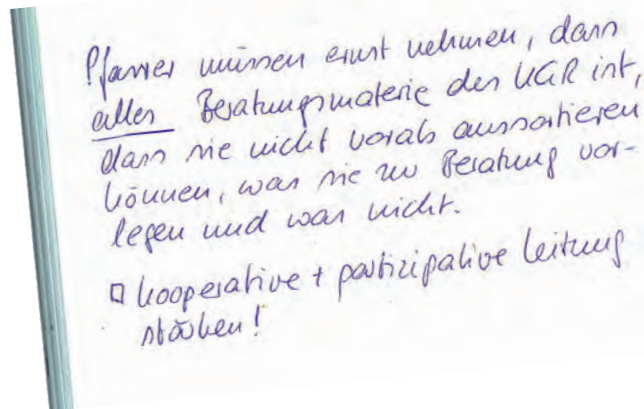 Pfarrer müssen ernst nehmen, dass
alles Beratungsmaterie des KGR ist,
dass sie nicht vorab aussortieren
können, was sie zu Beratung vor-
legen und was nicht.
□ kooperative + partizipative Leitung
stärken!